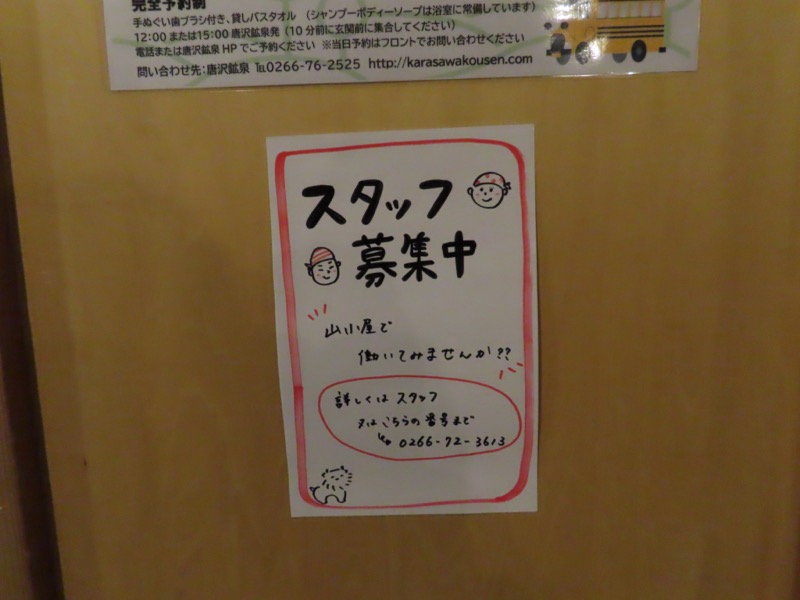 完全予約制
手ぬぐい歯ブラシ付き、貸しバスタオル （シャンプーボディーソープは浴室に常備しています）
12:00 または15:00 唐沢鉱泉発（10 分前に玄関前に集合してください）
電話または唐沢鉱泉 HP でご予約ください ※当日予約はフロントでお問い合わせください
問い合わせ先：唐沢鉱泉 ℡0266-76-2525 http://karasawakousen.com
スタッフ
募集中
山小屋で
働いてみませんか??
詳しくは スタッフ
又は こちらの番号まで
0266-72-3613